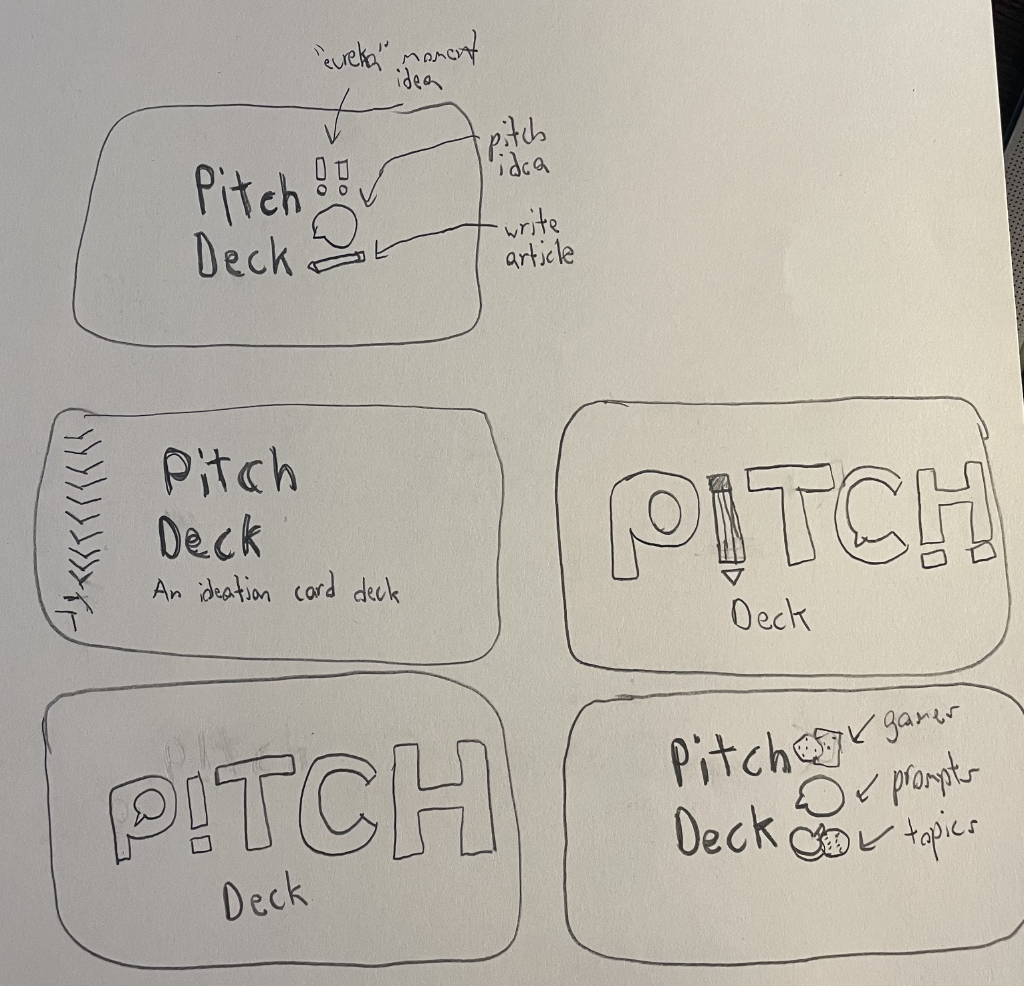 "eureka" moment
idea
Pitch !!
Deck
pitch
idea
write
article
Pitch
Deck
An ideation card deck
PITCH
Deck
P!TCH
Deck
Pitch
Deck
games
prompts
topics